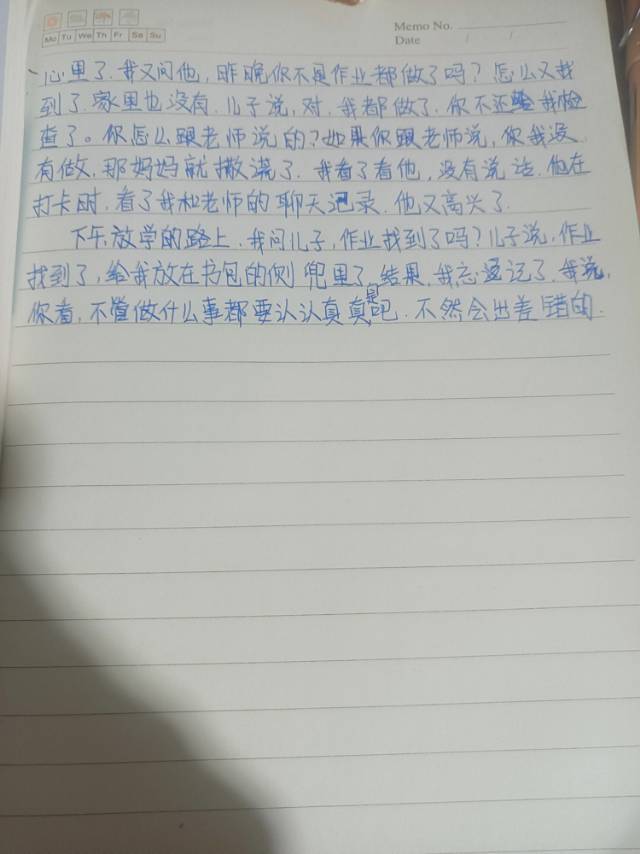 Memo No.
Mo Tu We Th Fr Sa Su
Date / /
心里了.我又问他,昨晚你不是作业都做了吗?怎么又找
到了.家里也没有.儿子说,对.我都做了.你不还给我检
查了。你怎么跟老师说的?如果你跟老师说,你我没
有做,那妈妈就撒谎了.我看了看他,没有说话.他在
打卡时,看了我和老师的聊天记录.他又高兴了.
下午放学的路上,我问儿子,作业找到了吗?儿子说,作业
找到了,给我放在书包的侧兜里了,结果,我忘记了.我说,
你看,不管做什么事都要认认真真是吧.不然会出差错的.